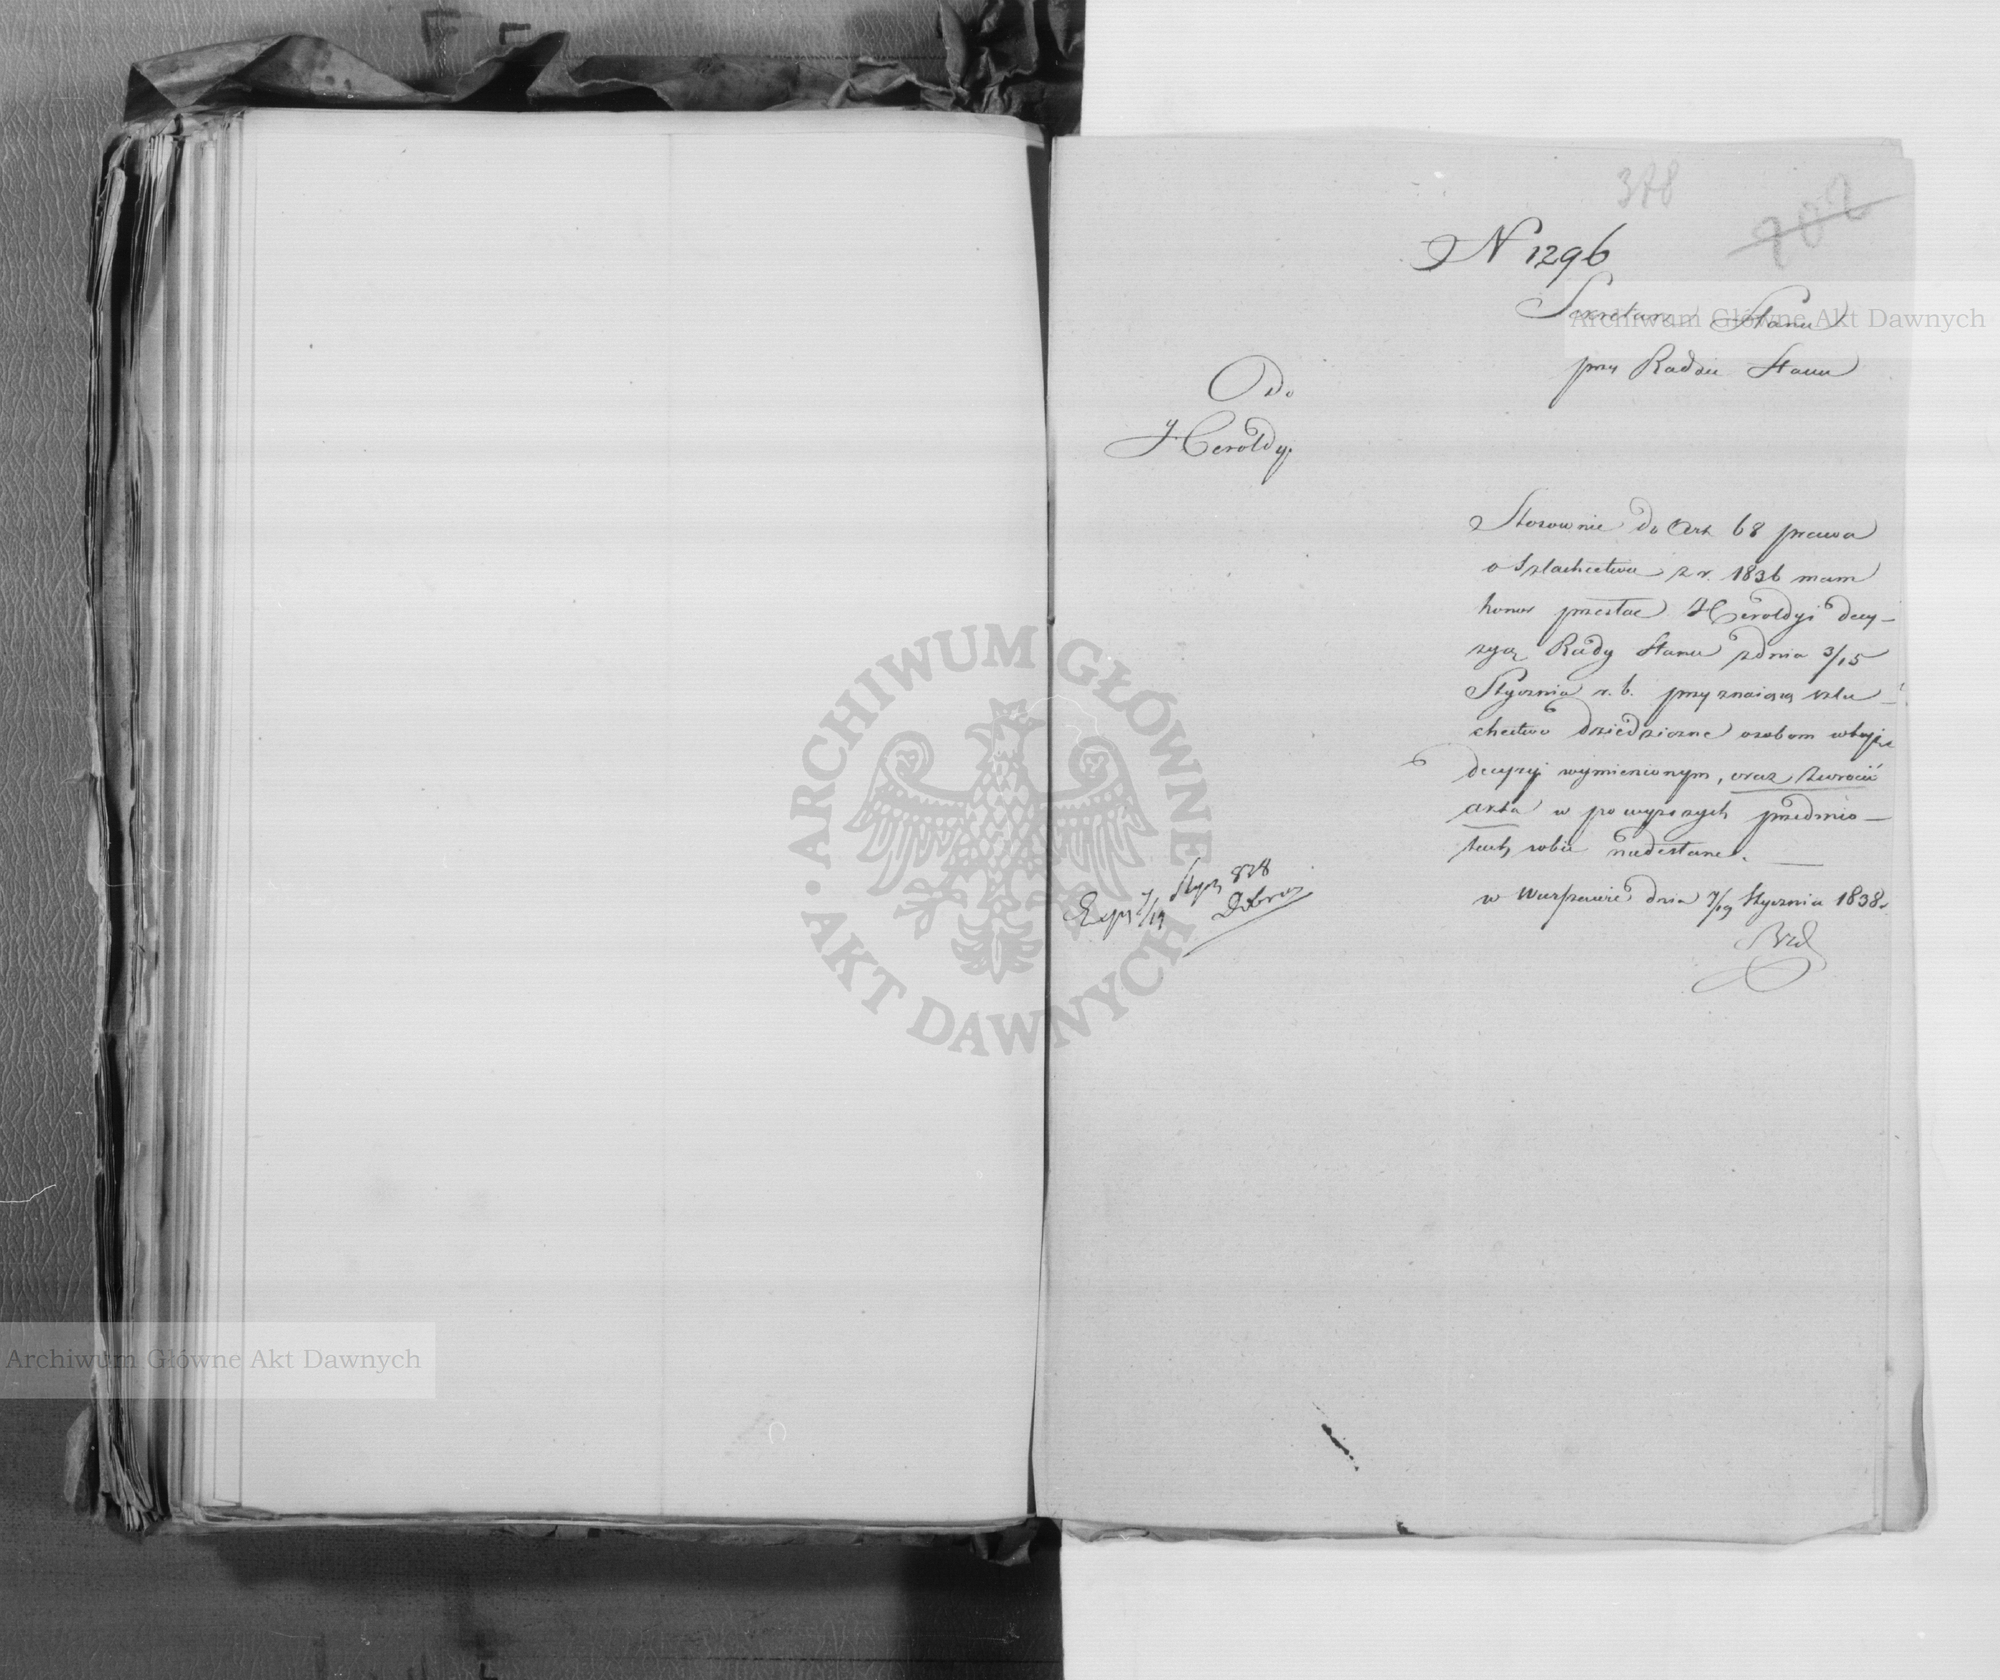 378
202
N 1296
Sekretarz Stanu
przy Radzie Stanu
Do
Heroldyi
Stosownie do Art 68 prawa
o Szlachectwie z r. 1836 mam
honor przesłać Heroldyi decy-
zyą Rady Stanu z dnia 3/15
Stycznia r. b. przyznaiącą szla-
chectwo dziedziczne osobom w tejże
decyzyi wymienionym, oraz zwrócić
akta w powyższych przedmio-
tach sobie nadesłane.
w Warszawie dnia 7/19 Stycznia 1838.
Exp 7/19 Stycz 838
ARCHIWUM GŁÓWNE
AKT DAWNYCH
Archiwum Główne Akt Dawnych
Archiwum Główne Akt Dawnych